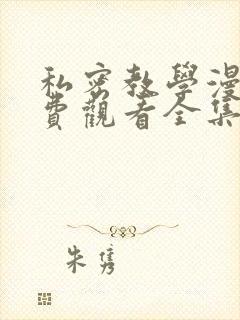 私密教學漫
費觀看全集
朱雋